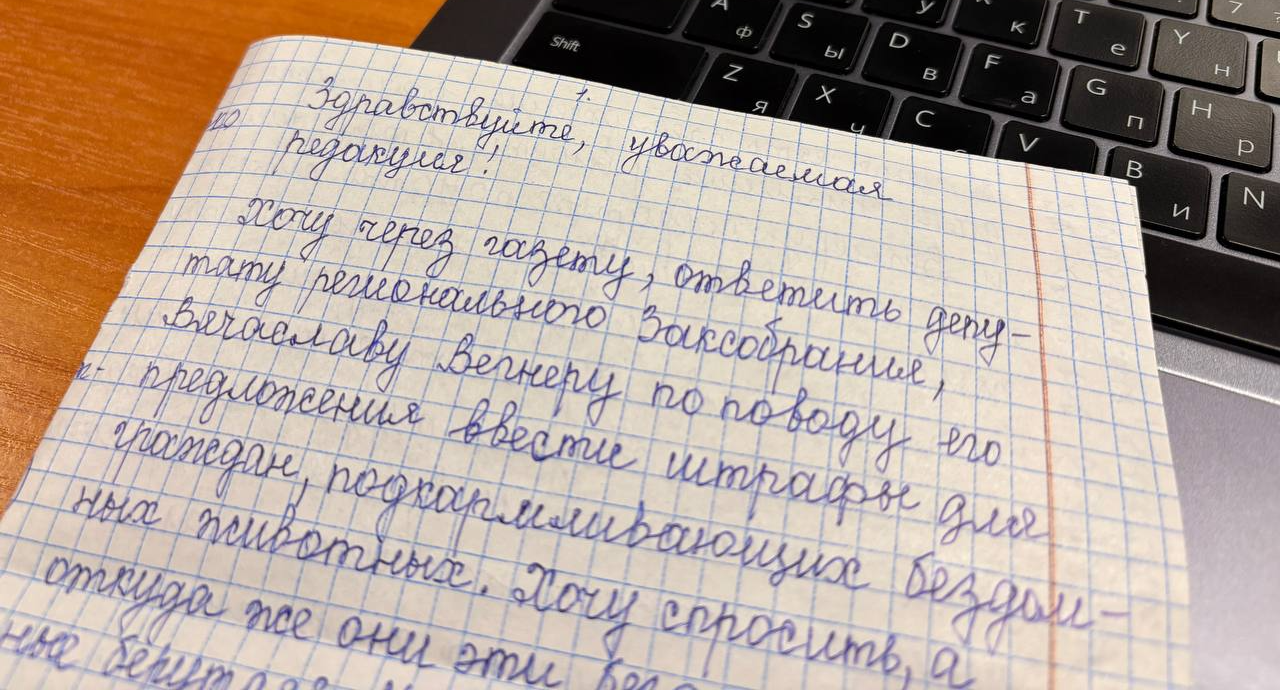 1.
Здравствуйте, уважаемая
редакция!
Хочу через газету, ответить депу-
тату регионального Заксобрания,
Вячаславу Вегнеру по поводу его
предложения ввести штрафы для
граждан, подкармливающих бездом-
ных животных. Хочу спросить, а
откуда же они эти
ные берутся
Shift
A Ф
S Ы
D В
F а
T е
Y Н
7
Z Я
X Ч
C с
V
G П
H Р
B И
N
у
К